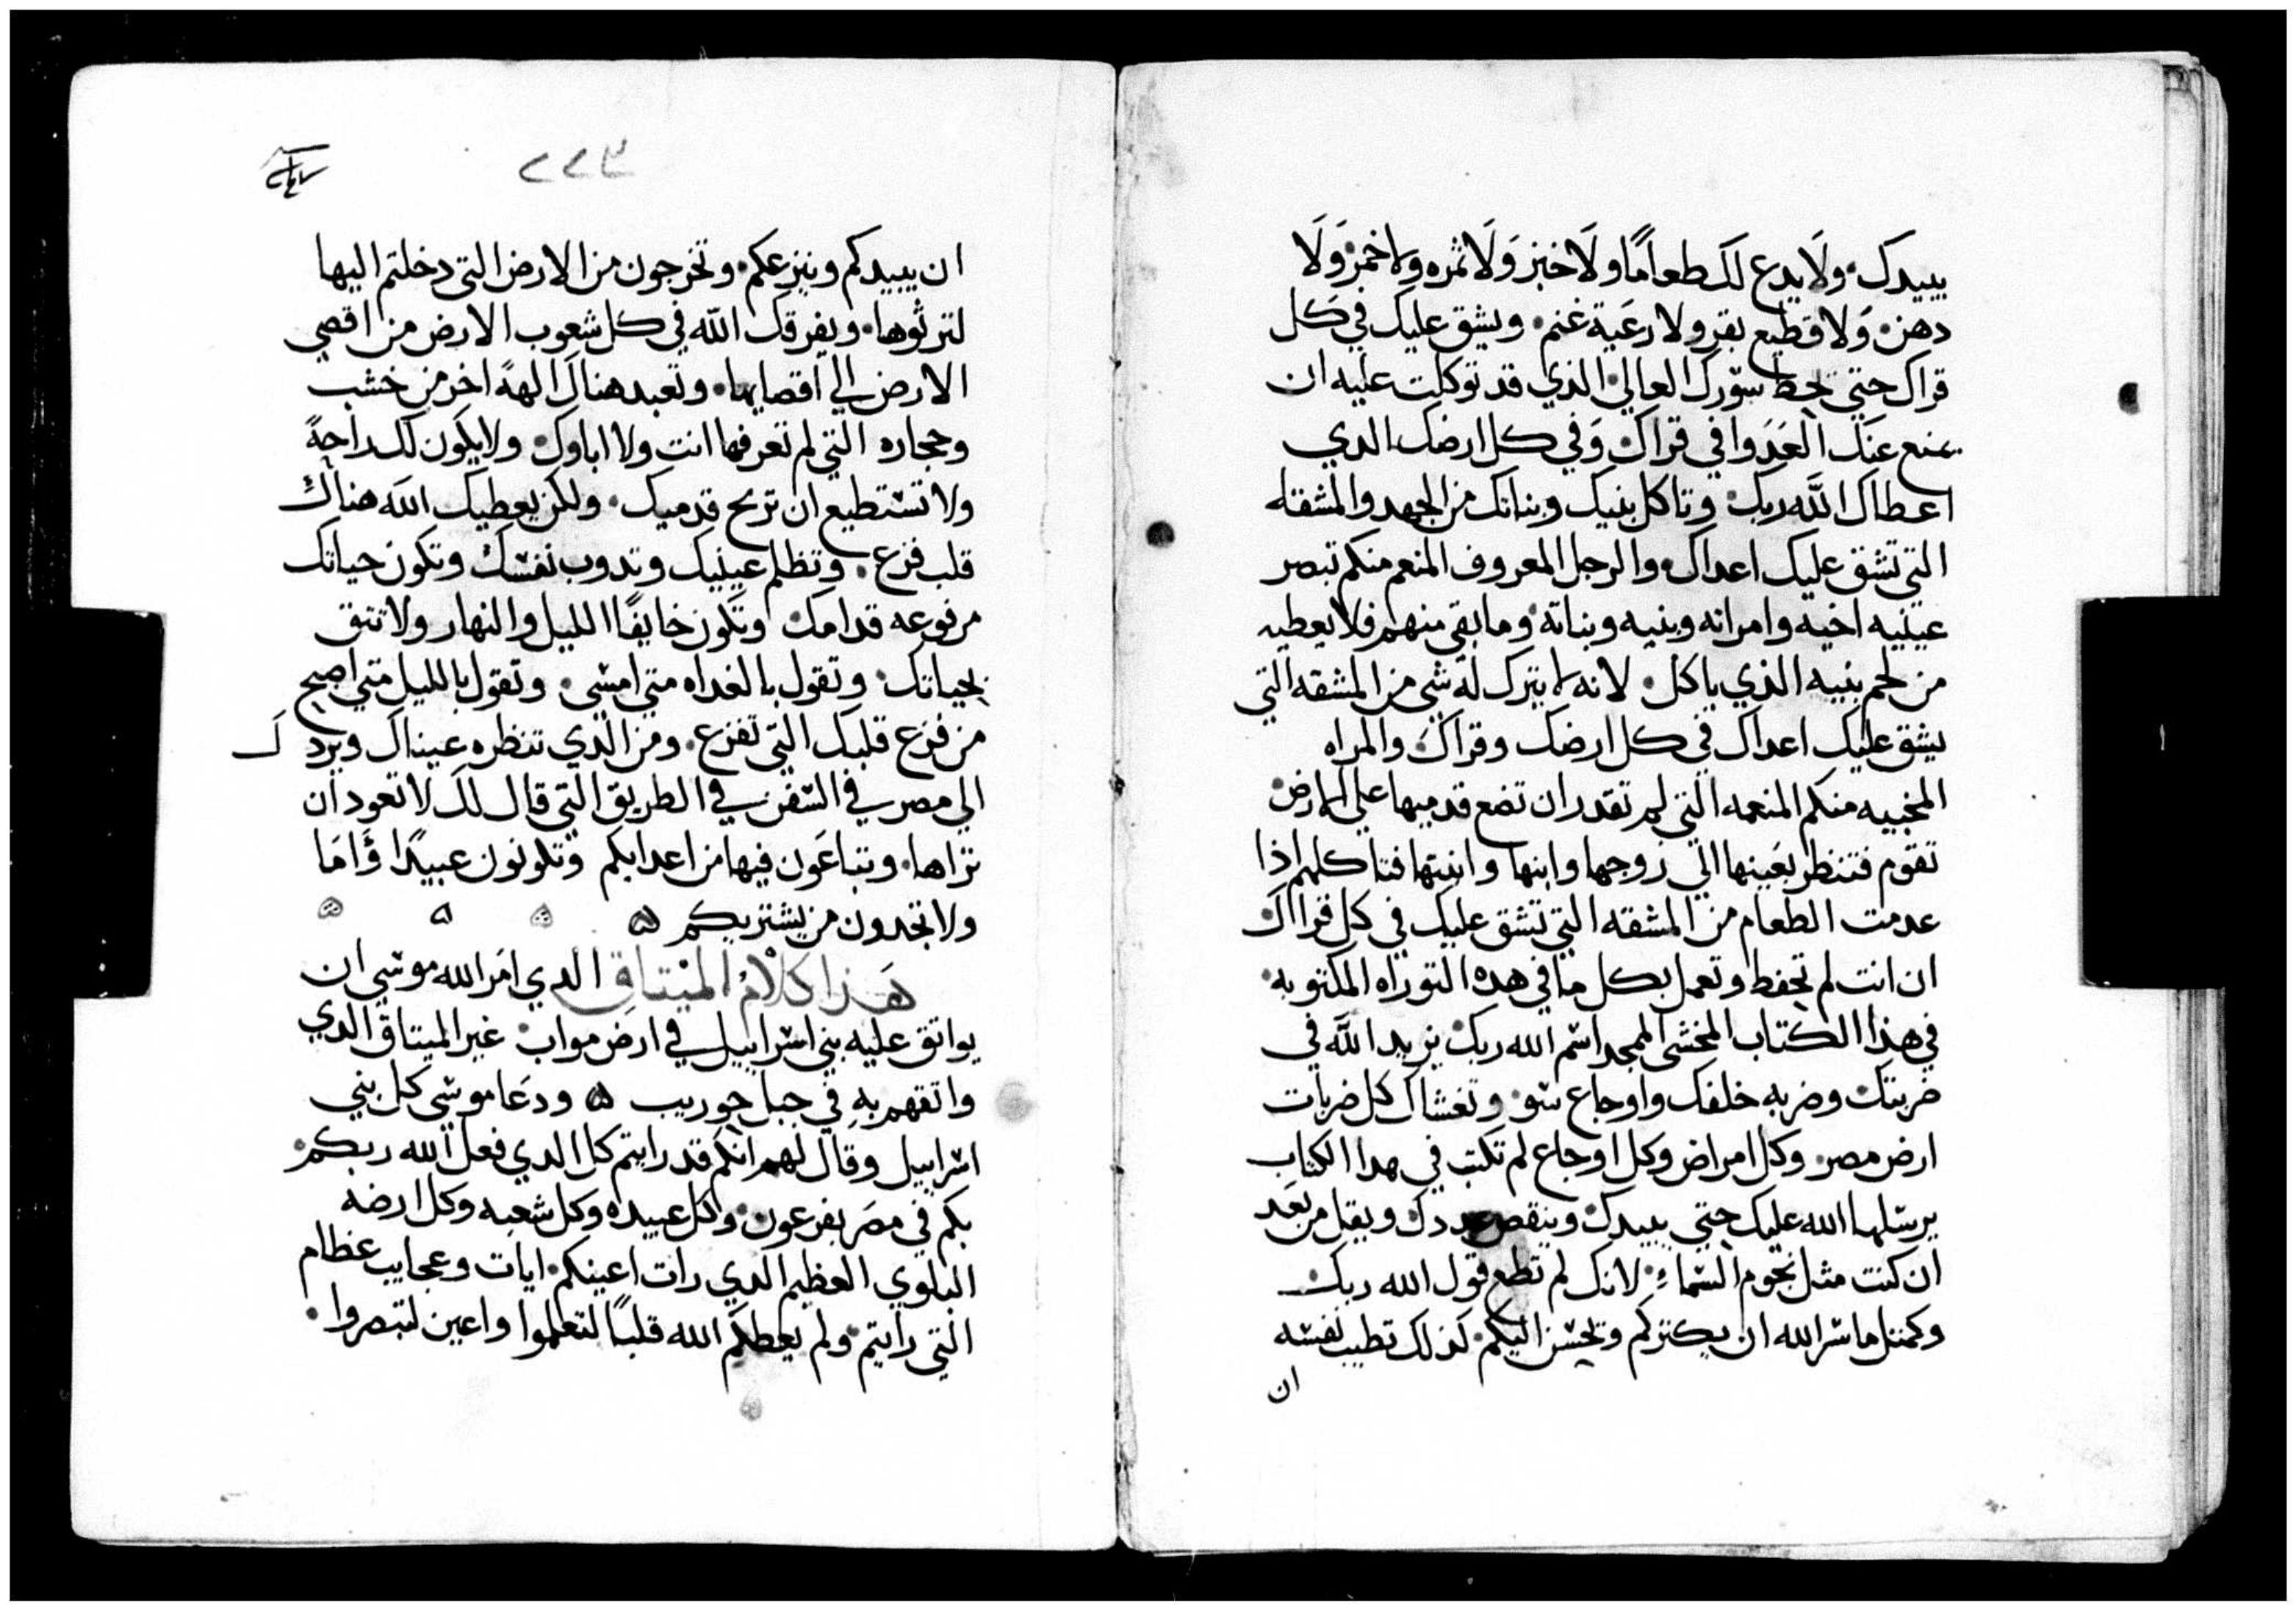 يبيدك ولا يدع لك طعامًا ولا خبز ولا ثمره ولا خمر ولا
دهن ولا قطيع بقر ولا رعية غنم ويشق عليك في كل
قراك حتي تحط سورك العالي الذي قد توكلت عليه ان
يمنع عنك العدوا في قراك وفي كل ارضك الدي
اعطاك الله ربك وتاكل بنيك وبناتك من الجهد والمشقه
التي تشق عليك اعداك والرجل المعروف المنعم منكم تبصر
عينيه اخيه وامراته وبنيه وبناته وما بقي منهم فلا يعطيه
من لحم بنيه الذي ياكل لانه لا يترك له شي من المشقه التي
يشق عليك اعداك في كل ارضك وقراك والمراه
المخبيه منكم المنعمه التي لم تقدر ان تضع قدميها علي الارض
تقوم فتنظر بعينها الي زوجها وابنها وابنتها فتاكلهم اذا
عدمت الطعام من المشقه التي تشق عليك في كل قراك
ان انت لم تحفط وتعمل بكل ما في هده التوراه المكتوبه
في هذا الكتاب المخشي الممجد اسم الله ربك يزيد الله في
ضربتك وضربه خلفك واوجاع سو وتغشاك كل ضربات
ارض مصر وكل امراض وكل اوجاع لم تكتب في هدا الكتاب
يرسلها الله عليك حتي يبيدك وينقص عددك ويقل من بعد
ان كنت مثل نجوم السماء لانك لم تطع قول الله ربك
وكمثل ما سر الله ان يكتركم ويحسن اليكم كذلك تطيب نفسه
ان
٢٢٣
ان يبيدكم وينزعكم وتخرجون من الارض التي دخلتم اليها
لترثوها ويفرقك الله في كل شعوب الارض من اقصي
الارض الي اقصايها وتعبد هناك الهةً اخر من خشب
وحجاره التي لم تعرفها انت ولا اباوك ولا يكون لك راحةً
ولا تستطيع ان تريح قدميك ولكن يعطيك الله هناك
قلب فزع وتظلم عينيك وتدوب نفسك وتكون حياتك
مرفوعه قدامك وتكون خايفًا الليل والنهار ولا تثق
بحياتك وتقول بالغداه متي امشي وتقول بالليل متي اصبح
من فزع قلبك التي تفزع ومن الذي تنظره عيناك ويردك
الي مصر في السفن في الطريق التي قال لك لا تعود ان
تراها وتباعون فيها من اعدايكم وتكونون عبيدًا وامًا
ولا تجدون من يشتريكم
هذا كلام الميتاق الدي امر الله موسي ان
يواتق عليه بني اسراييل في ارض مواب غير الميتاق الدي
واتقهم به في جبل حوريب ودعا موسي كل بني
اسراييل وقال لهم انكم قد رايتم كل الدي فعل الله ربكم
بكم في مصر بفرعون وكل عبيده وكل شعبه وكل ارضه
البلوي العظيم الدي رات اعينكم ايات وعجايب عظام
التي رايتم ولم يعطكم الله قلبًا لتعلموا واعين لتبصروا